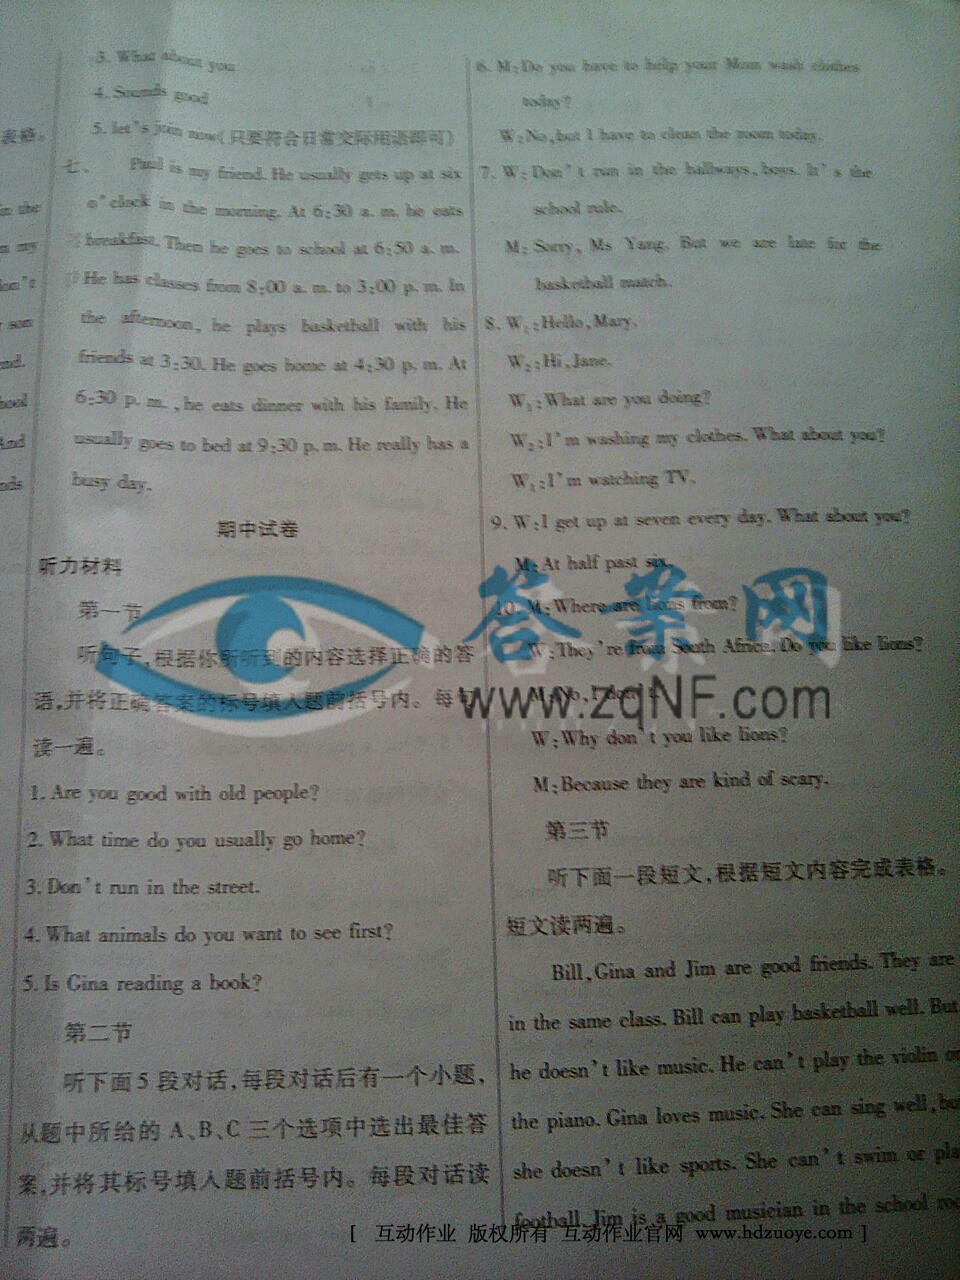 3. What about you
4. Sounds good
5. let's join now(只要符合日常交际用语即可)
七、 Paul is my friend. He usually gets up at six
o'clock in the morning. At 6:30 a. m. he eats
breakfast. Then he goes to school at 6:50 a. m.
He has classes from 8:00 a. m. to 3:00 p. m. In
the afternoon, he plays basketball with his
friends at 3:30. He goes home at 4:30 p. m. At
6:30 p. m. , he eats dinner with his family. He
usually goes to bed at 9:30 p. m. He really has a
busy day.
期中试卷
听力材料
第一节
听句子,根据你所听到的内容选择正确的答
语,并将正确答案的标号填入题前括号内。每句
读一遍。
1. Are you good with old people?
2. What time do you usually go home?
3. Don't run in the street.
4. What animals do you want to see first?
5. Is Gina reading a book?
第二节
听下面 5 段对话,每段对话后有一个小题,
从题中所给的 A、B、C 三个选项中选出最佳答
案,并将其标号填入题前括号内。每段对话读
两遍。
6. M:Do you have to help your Mom wash clothes
today?
W:No,but I have to clean the room today.
7. W:Don't run in the hallways, boys. It's the
school rule.
M:Sorry, Ms Yang. But we are late for the
basketball match.
8. W₁:Hello,Mary.
W₂:Hi,Jane.
W₁:What are you doing?
W₂:I'm washing my clothes. What about you?
W₁:I'm watching TV.
9. W:I get up at seven every day. What about you?
M:At half past six.
10. M:Where are lions from?
W:They're from South Africa. Do you like lions?
M:No, I don't.
W:Why don't you like lions?
M:Because they are kind of scary.
第三节
听下面一段短文,根据短文内容完成表格。
短文读两遍。
Bill,Gina and Jim are good friends. They are
in the same class. Bill can play basketball well. But
he doesn't like music. He can't play the violin or
the piano. Gina loves music. She can sing well,but
she doesn't like sports. She can't swim or pla
football. Jim is a good musician in the school roc
表格。
in the
my
don't
son
end.
hool
And
nds
答案网
www.zqNF.com
[ 互动作业 版权所有 互动作业官网 www.hdzuoye.com ]